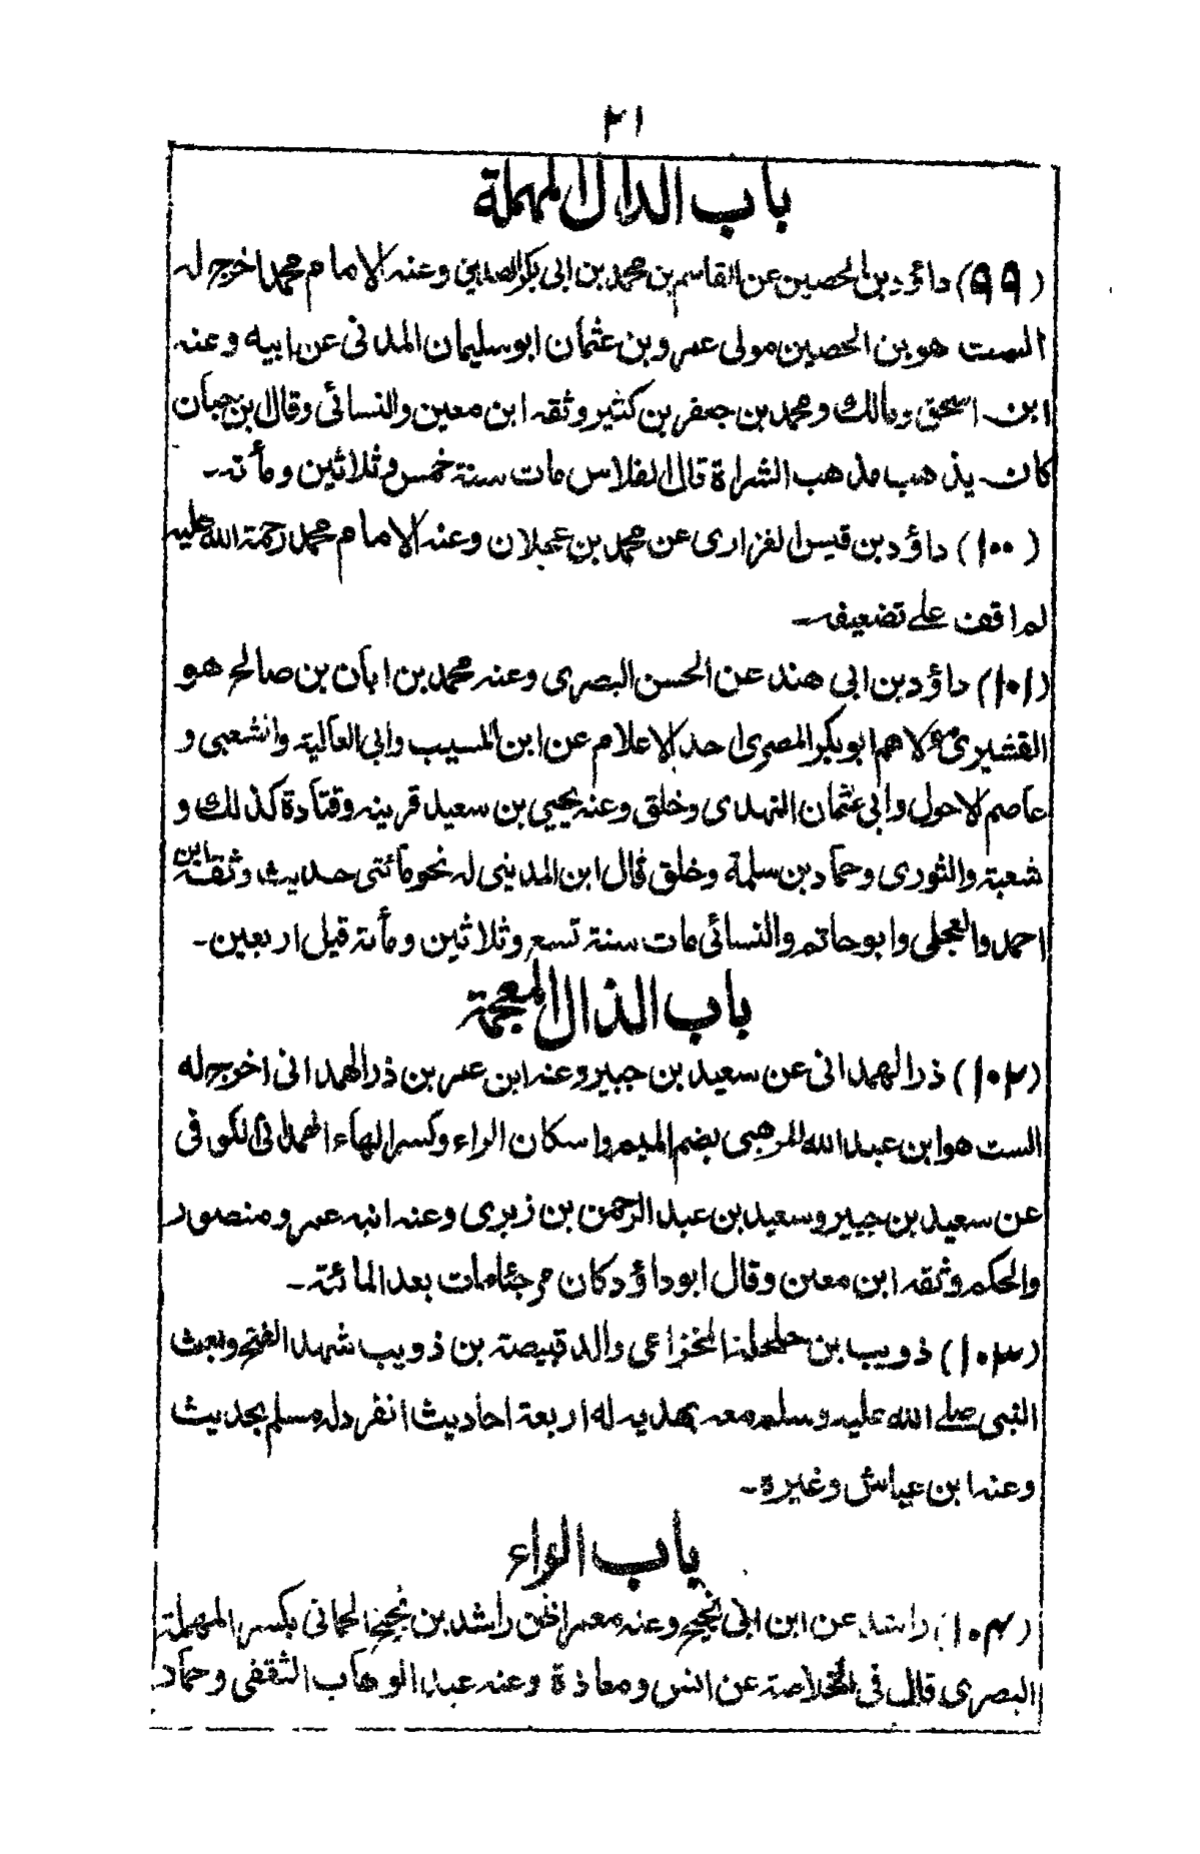 ٢١
باب الدال المهملة
(٩٩) داؤد بن الحصين عن القاسم بن محمد بن ابى بكر الصديق وعنه الامام محمد اخرج له
الست هو بن الحصين مولى عمر وبن عثمان ابو سليمان المدنى عن ابيه وعنه
ابن اسحق ومالك ومحمد بن جعفر بن كثير وثقه ابن معين والنسائى وقال بن حبان
كان يذهب مذهب الشراة قال الفلاس مات سنة خمس وثلاثين ومأته۔
(١٠٠) داؤد بن قيس الفزارى عن محمد بن عجلان وعنه الامام محمد رحمة الله عليه
لم اقف على تضعيفه۔
(١٠١) داؤد بن ابى هند عن الحسن البصرى وعنه محمد بن ابان بن صالح هو
القشيرى مولاهم ابو بكر المصرى احد الاعلام عن ابن المسيب وابى العالية وانشعبى و
عاصم الاحول وابى عثمان النهدى وخلق وعنه يحيى بن سعيد قرينه وقتادة كذلك و
شعبة والثورى وحماد بن سلمة وخلق قال ابن المدينى له نحو مائتى حديث وثقه ابن
احمد والعجلى وابو حاتم والنسائى مات سنة تسع وثلاثين ومأته قيل اربعين۔
باب الذال المعجمة
(١٠٢) ذر الهمدانى عن سعيد بن جبير وعنه ابن عمر بن ذر الهمدانى اخرج له
الست هو ابن عبد الله المرهبى بضم الميم واسكان الراء وكسر الهاء الهمدانى الكوفى
عن سعيد بن جبير وسعيد بن عبد الرحمن بن زبرى وعنه انبه عمر ومنصور
والحكم وثقه ابن معين وقال ابو داؤد كان مرجئا مات بعد المائة۔
(١٠٣) ذويب بن حلحلنا الخزاعى والد قبيصة بن ذويب شهد الفتح وبعث
النبى صلى الله عليه وسلم معه بهديه له اربعة احاديث انفرد له مسلم بحديث
وعنه ابن عباش وغيرة۔
باب الراء
(١٠٤) راشد عن ابن ابى نجيح وعنه معمر اظن راشد بن نجيح الحمانى بكسر المهملة
البصرى قال فى الخلاصة عن انس ومعاذة وعنه عبد الوهاب الثقفى وحماد